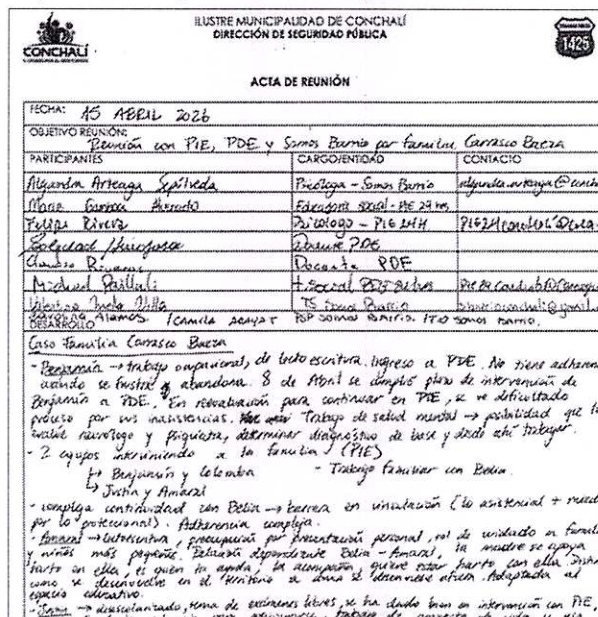 ILUSTRE MUNICIPALIDAD DE CONCHALÍ
DIRECCIÓN DE SEGURIDAD PÚBLICA
CONCHALÍ
1425
ACTA DE REUNIÓN
FECHA: 15 ABRIL 2026
OBJETIVO REUNIÓN:
Reunión con PIE, PDE y Somos Barrio por familia Carrasco Baeza
PARTICIPANTES CARGO/ENTIDAD CONTACTO
Alejandra Arteaga Sepúlveda Psicóloga - Somos Barrio
Educadora social - PIE 24 hrs
Felipe Rivera Psicólogo - PIE 24H
Soledad Docente PDE
Docente PDE
Michael Paillali T. Social
TS Somos Barrio
Alamos / CAMILA ARAYA T PSP SOMOS BARRIO. / TO SOMOS BARRIO.
DESARROLLO
Caso Familia Carrasco Baeza
- Benjamín → trabajo ocupacional, de lecto escritura. Ingreso a PDE. No tiene adherencia
cuando se frustra y abandona. 8 de Abril se cumplió plazo de intervención de
Benjamín a PDE. En reevaluación para continuar en PDE, se ve dificultado
proceso por sus inasistencias. Trabajo de salud mental → posibilidad que lo
evalúe neurólogo y psiquiatra, determinar diagnóstico de base y desde ahí trabajar.
- 2 equipos interviniendo a la familia (PIE)
↳ Benjamín y Colomba - Trabajo familiar con Belia.
↳ Justin y Amaral
- compleja continuidad con Belia → barrera en vinculación (lo asistencial + miedo
por lo proteccional). Adherencia compleja.
- Amaral → lectoescritura, preocupación por presentación personal, rol de cuidado en familia
y niños más pequeños. Relación dependiente Belia - Amaral, la madre se apoya
harto en ella, es quien la ayuda, la acompaña, quiere estar harto con ella.
como se desenvuelve en el territorio a como se desenvuelve
espacio educativo.
- desescolarizado, tema de exámenes libres, se ha dado bien en intervención con PIE,